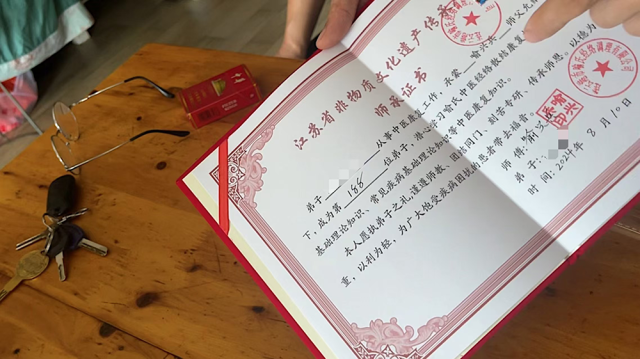 江苏省非物质文化遗产传承
师承证书
弟子
从事中医康复工作,承蒙
师父允
下,成为第 188 位弟子,潜心学习俞氏中医经络散结康复
基础理论知识、常见疾病基础理论知识等中医康复知识。
本人愿执弟子之礼,谨遵师教,团结同门,刻苦专研、传承师恩,以德为
重,以利为轻,为广大饱受疾病困扰患者带去福音。
师傅:
弟子:
时间:2024年8月10日